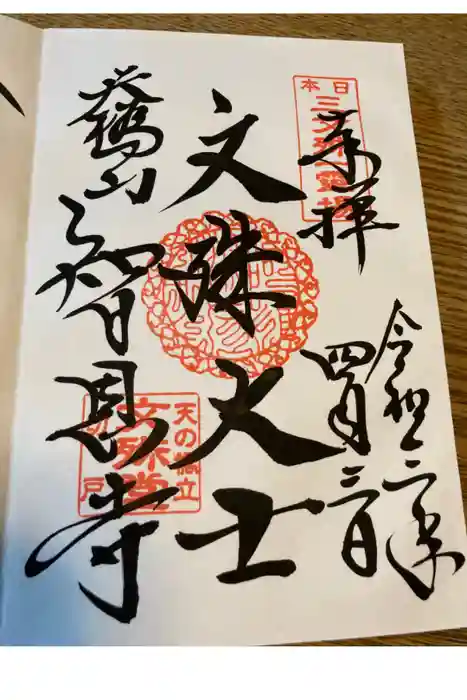 奉拝
日本
三文殊霊場
令和三年
四月三日
文殊大士
天橋山
智恩寺
天の橋立
文殊堂
切戸